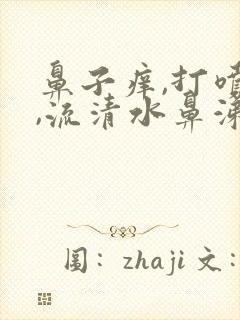 鼻子痒,打喷
,流清水鼻涕
图: zhaji 文: